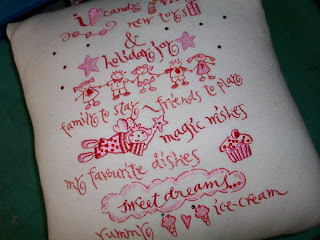 I candy
new toys
&
holiday joy
family to stay - friends to play
magic wishes
my favourite dishes
sweet dreams...
yummy ice-cream